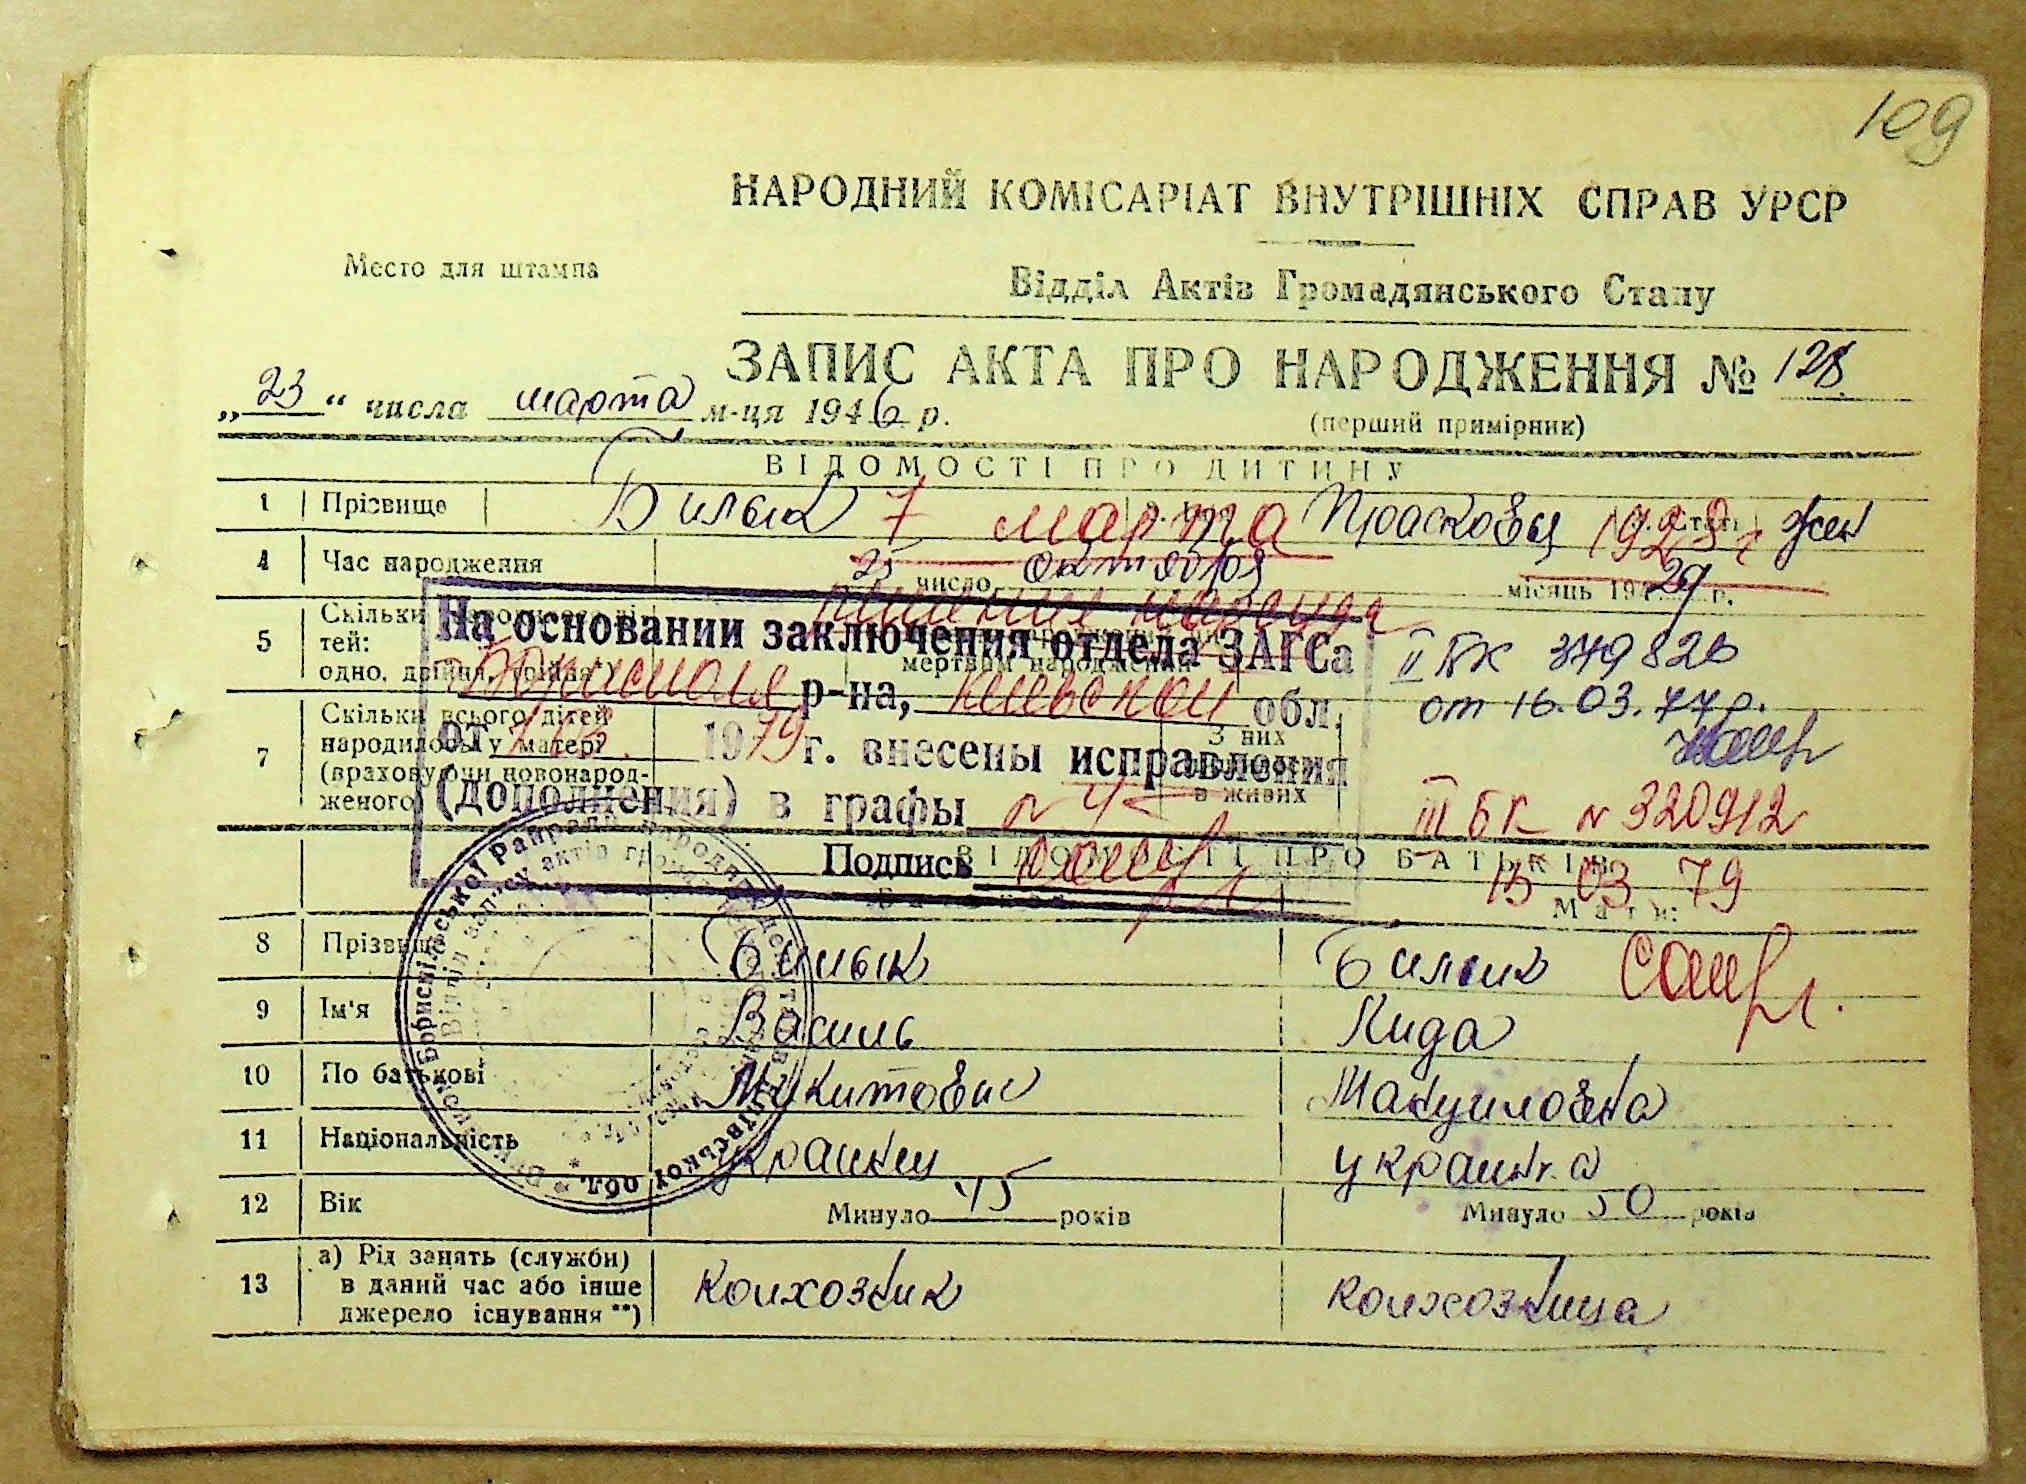 109
НАРОДНИЙ КОМІСАРІАТ ВНУТРІШНІХ СПРАВ УРСР
Место для штампа
Відділ Актів Громадянського Стану
ЗАПИС АКТА ПРО НАРОДЖЕННЯ № 128
„23“ числа марта м-ця 1946 р.
(перший примірник)
ВІДОМОСТІ ПРО ДИТИНУ
1 Прізвище Билык 7 марта Прасковья 1928 г жен
4 Час народження 25 число октября місяць 1929 р.
5 Скільки тей: одно, двійня, трійня*)
мертвим народження
На основании заключения отдела ЗАГСа
р-на, киевской обл.
от 1979 г. внесены исправления
(дополнения) в графы n 4
Подпись
II БК 379826
от 16.03.77р.
III БК n 320912
15 03 79
7 Скільки всього дітей народилось у матері (враховуючи новонародженого)
З них в живих
ВІДОМОСТІ ПРО БАТЬКІВ
Мати:
8 Прізвище Билык Билык
9 Ім'я Василь Кида
10 По батькові Микитович Мануиловна
11 Національність украинец украинка
12 Вік Минуло 45 років Минуло 50 років
13 а) Рід занять (служби) в даний час або інше джерело існування **) колхозник колхозница
Бориспільської Райради народних депутатів Київської обл.
Відділ запису актів